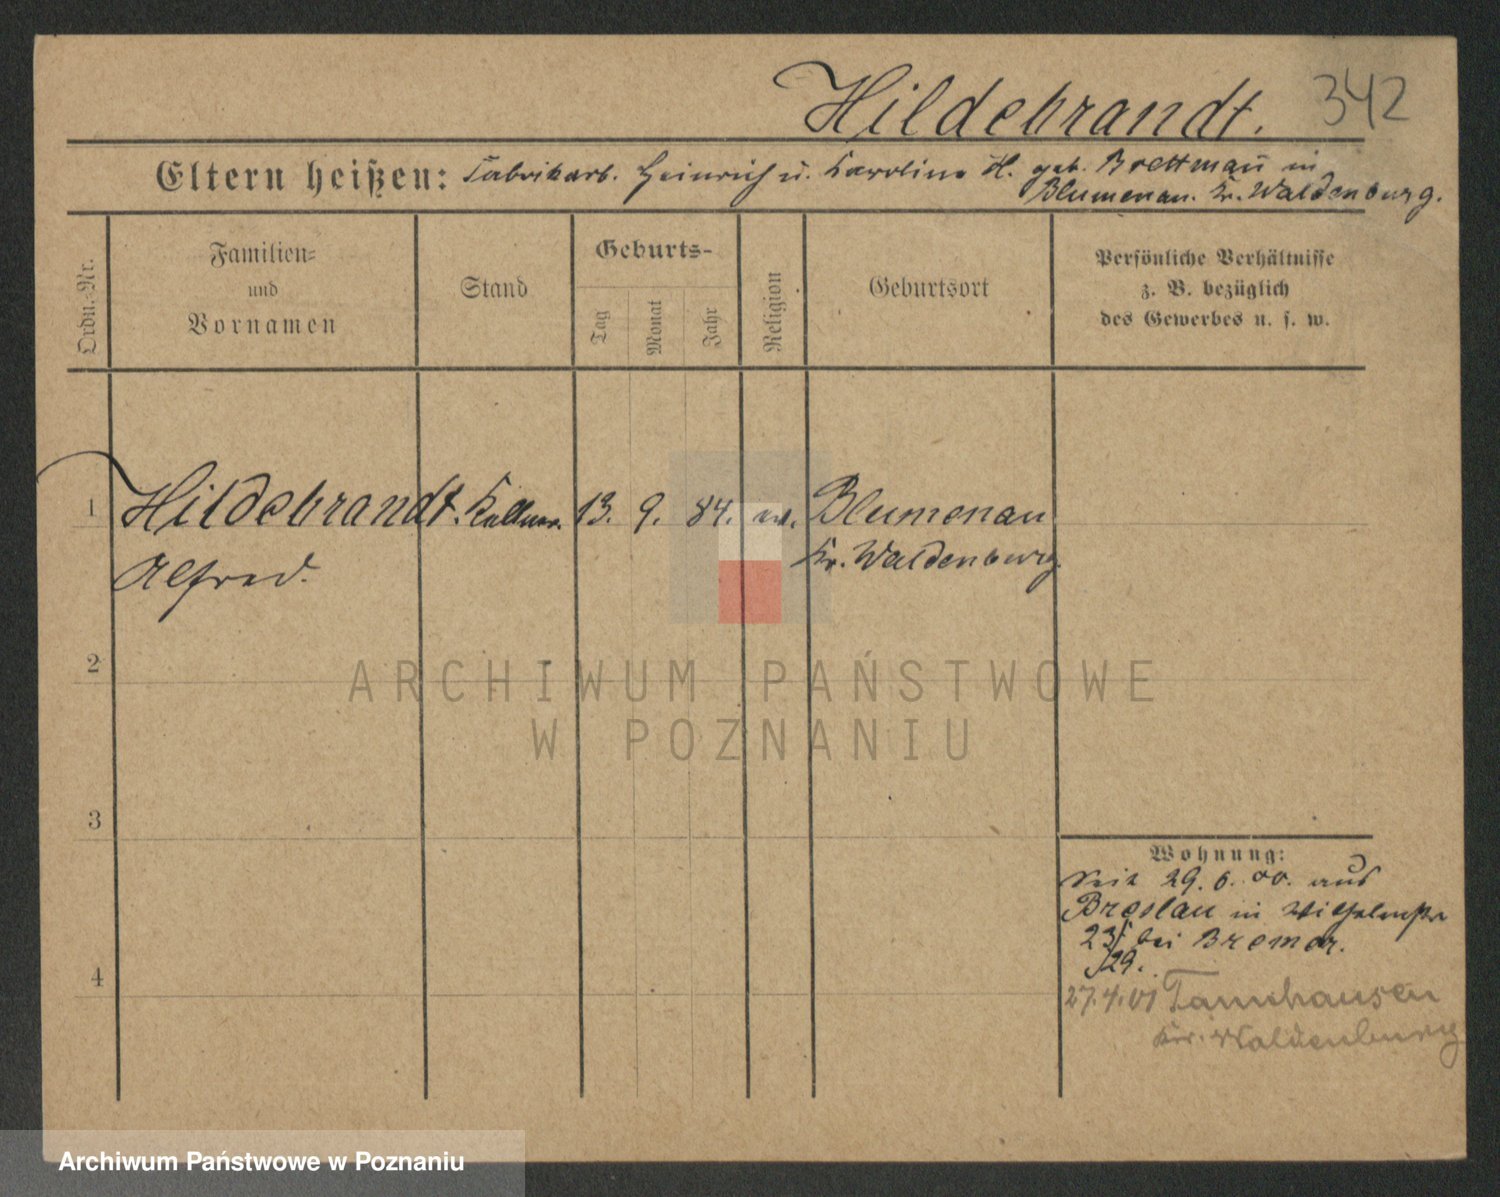 Hildebrandt. 342
Eltern heißen: Fabrikarb. Heinrich u. Karoline H. geb. Brettman̄ in
Blumenau. Kr. Waldenburg.
Ordn.-Nr.
Familien-
und
Vornamen
Stand
Geburts-
Tag
Monat
Jahr
Religion
Geburtsort
Persönliche Verhältnisse
z. B. bezüglich
des Gewerbes u. s. w.
1 Hildebrandt. Kellner. 13. 9. 84. ev. Blumenau
Alfred. Kr. Waldenburg.
2
3
4
Wohnung:
Seit 29. 6. 00. aus
Breslau in Wilhelmstr
23/ bei Bremer.
/29.
27.4.01 Tannhausen
Kr. Waldenburg
ARCHIWUM PAŃSTWOWE
W POZNANIU
Archiwum Państwowe w Poznaniu